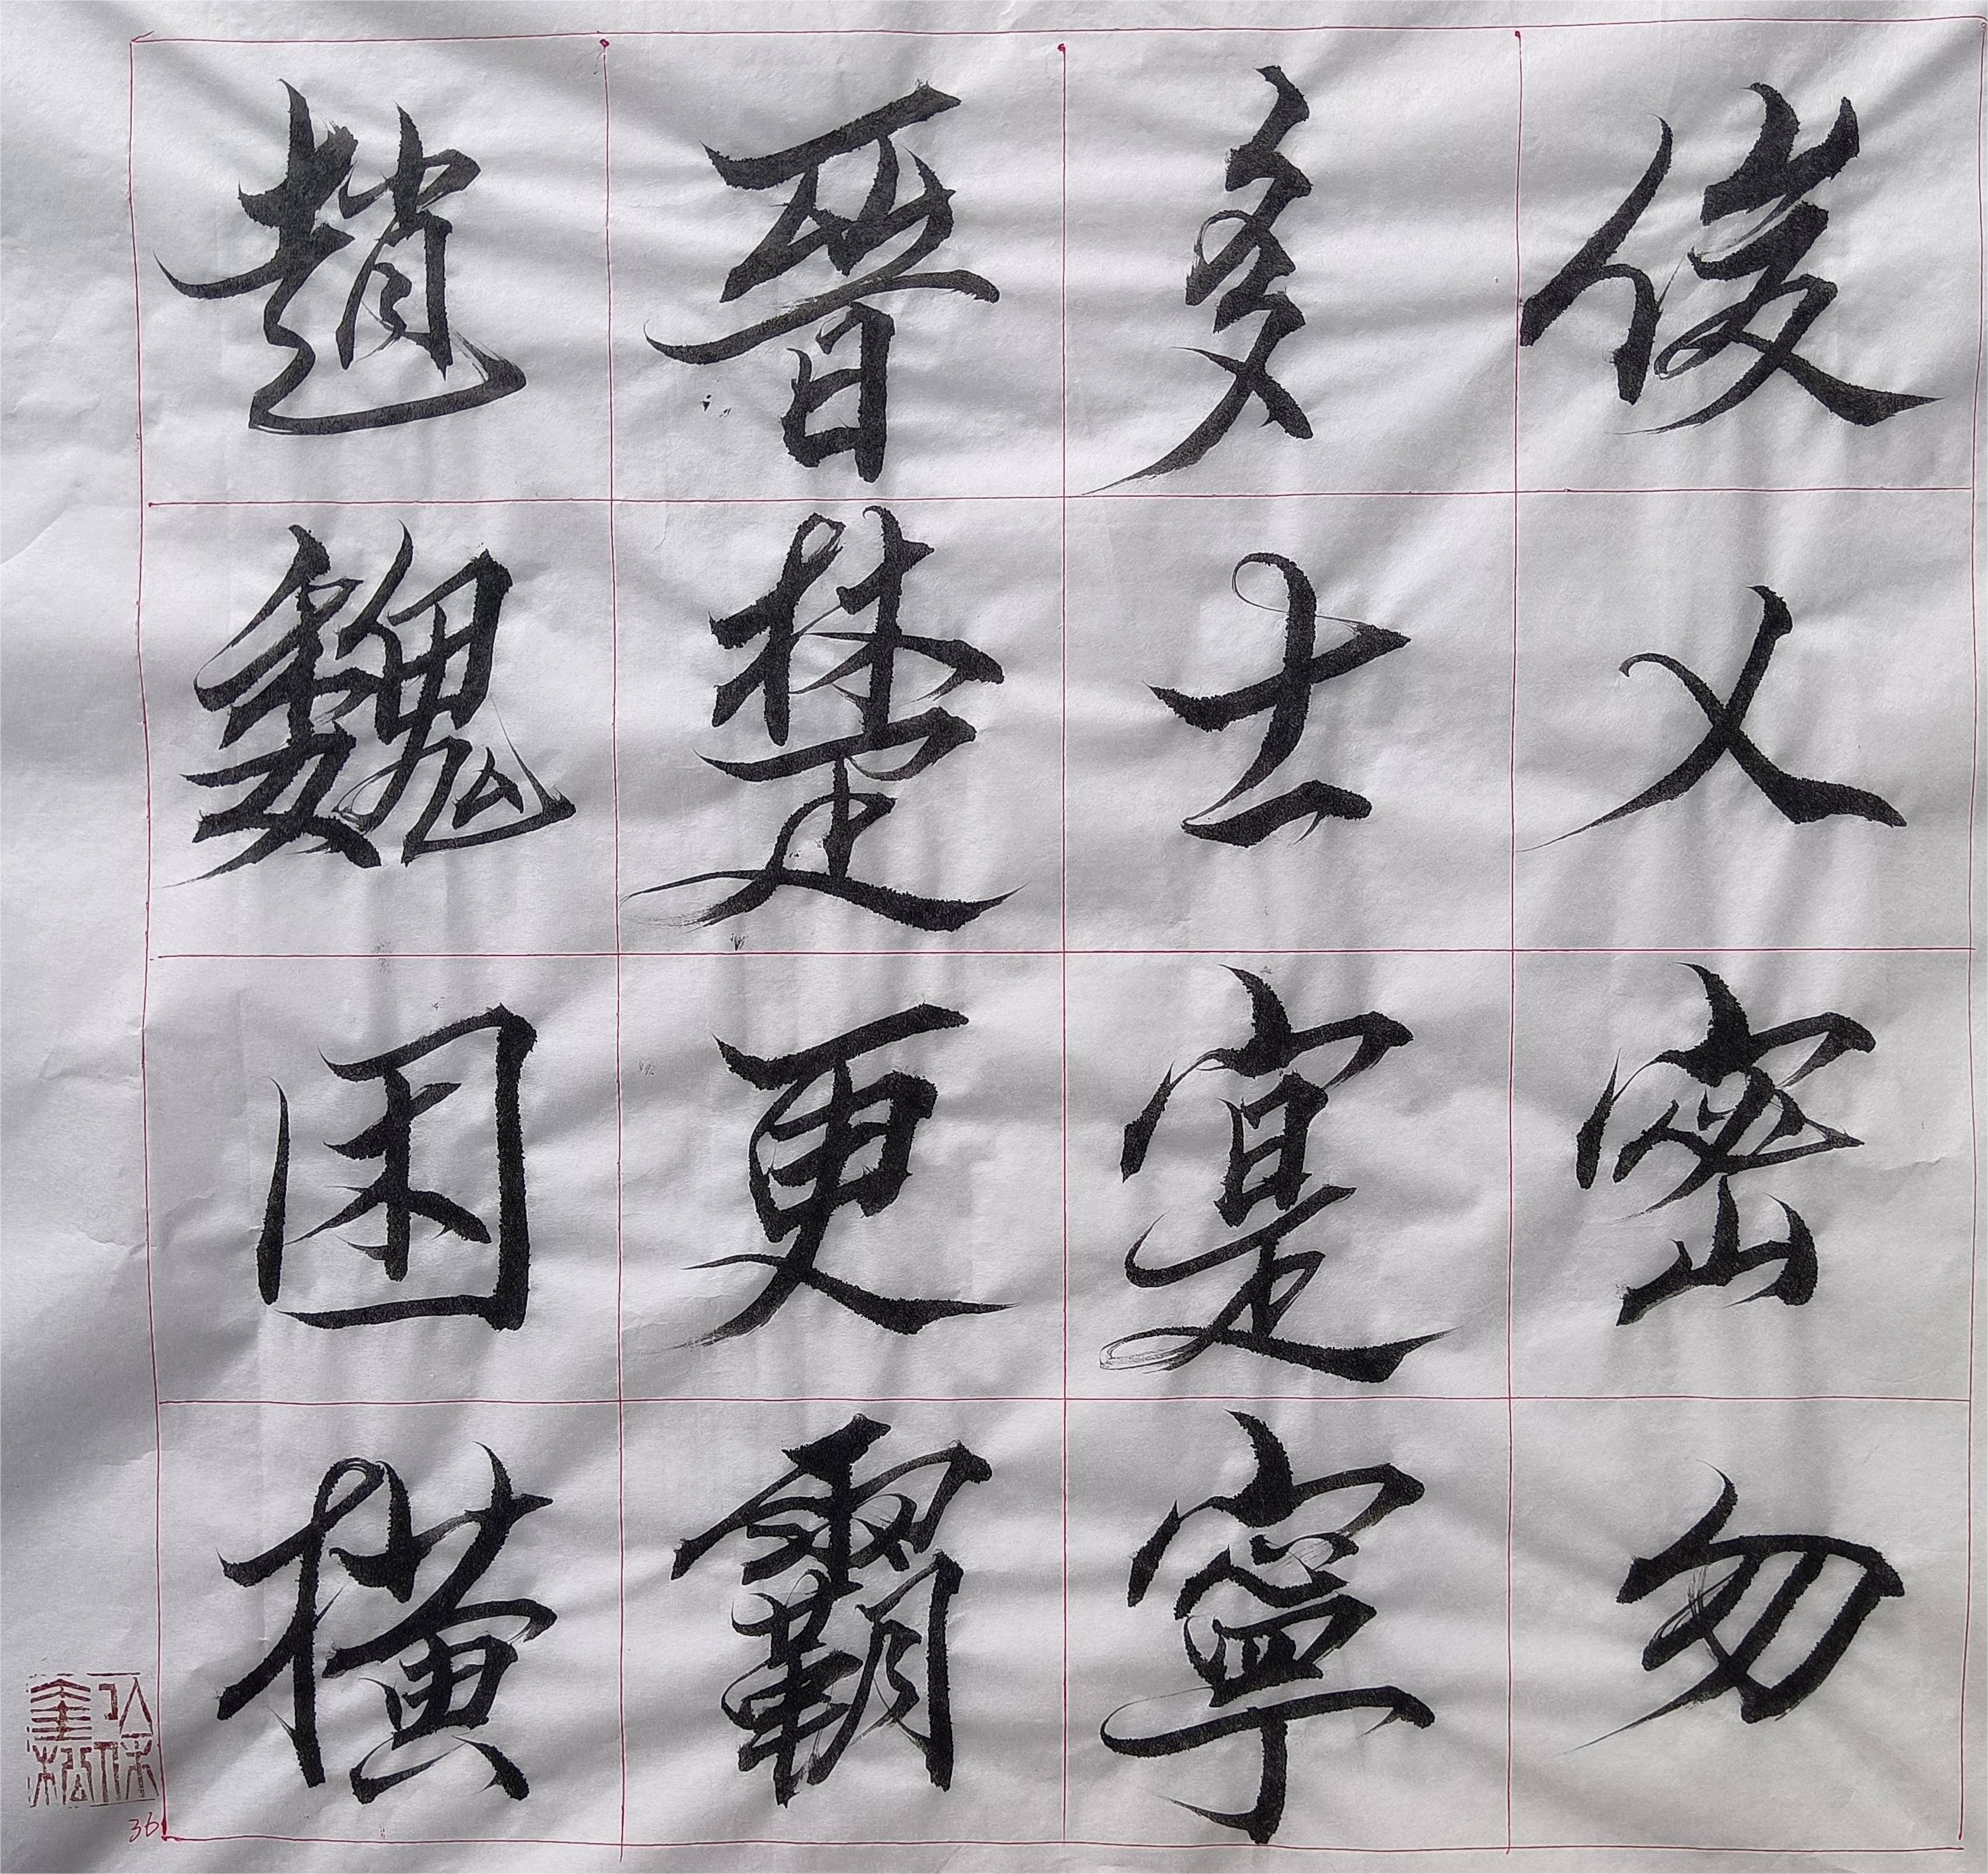 俊乂密勿
多士寔寧
晉楚更霸
趙魏困橫
36